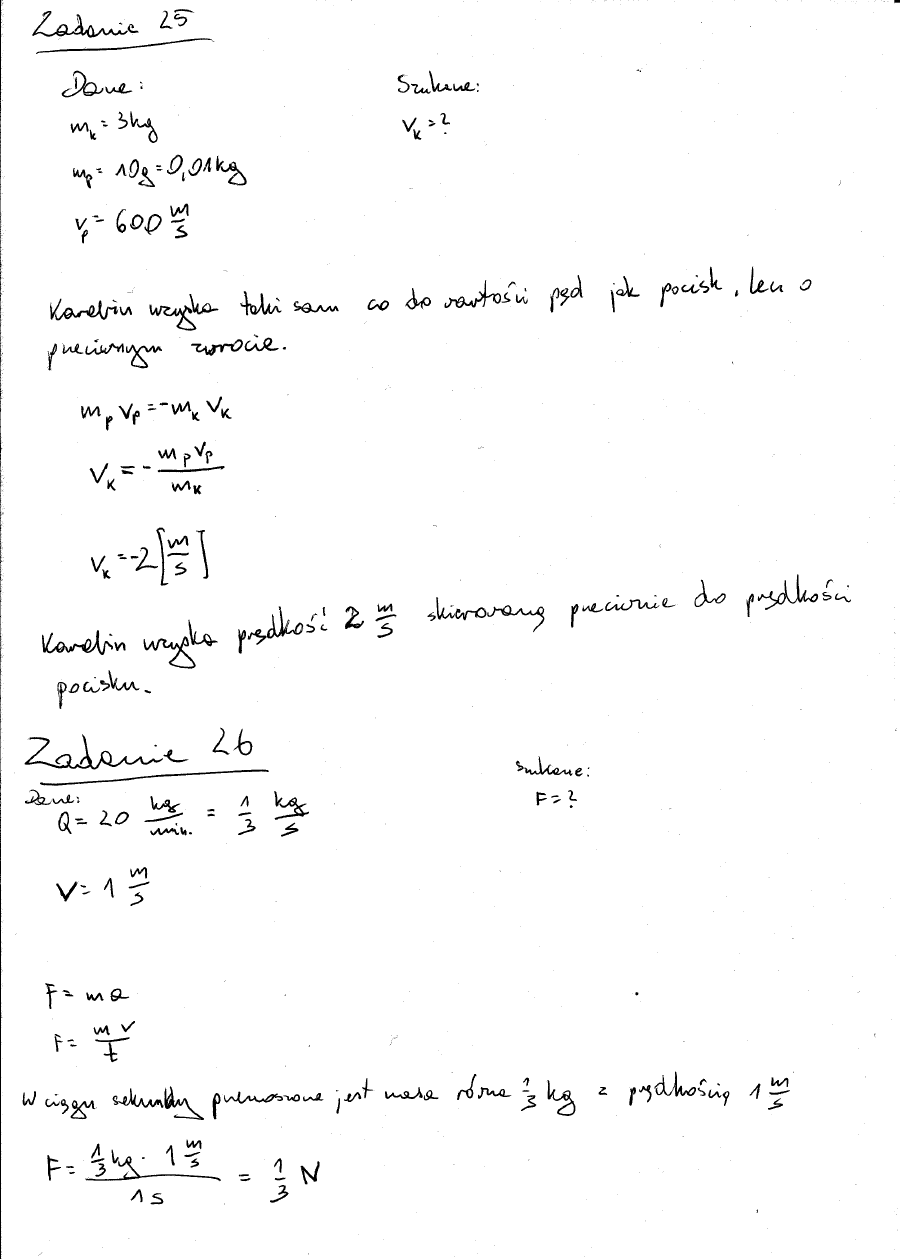 Zadanie 25
Dane: Szukane:
m_k = 3kg V_k = ?
m_p = 10g = 0,01kg
v_p = 600 m/s
Karabin uzyska taki sam co do wartości pęd jak pocisk, lecz o
przeciwnym zwrocie.
m_p v_p = -m_k v_k
V_k = - m_p v_p / m_k
V_k = -2 [m/s]
Karabin uzyska prędkość 2 m/s skierowaną przeciwnie do prędkości
pocisku.
Zadanie 26
Dane: Szukane:
Q = 20 kg/min. = 1/3 kg/s F = ?
V = 1 m/s
F = ma
F = m v / t
W ciągu sekundy przenoszona jest masa równa 1/3 kg z prędkością 1 m/s
F = 1/3 kg · 1 m/s / 1s = 1/3 N